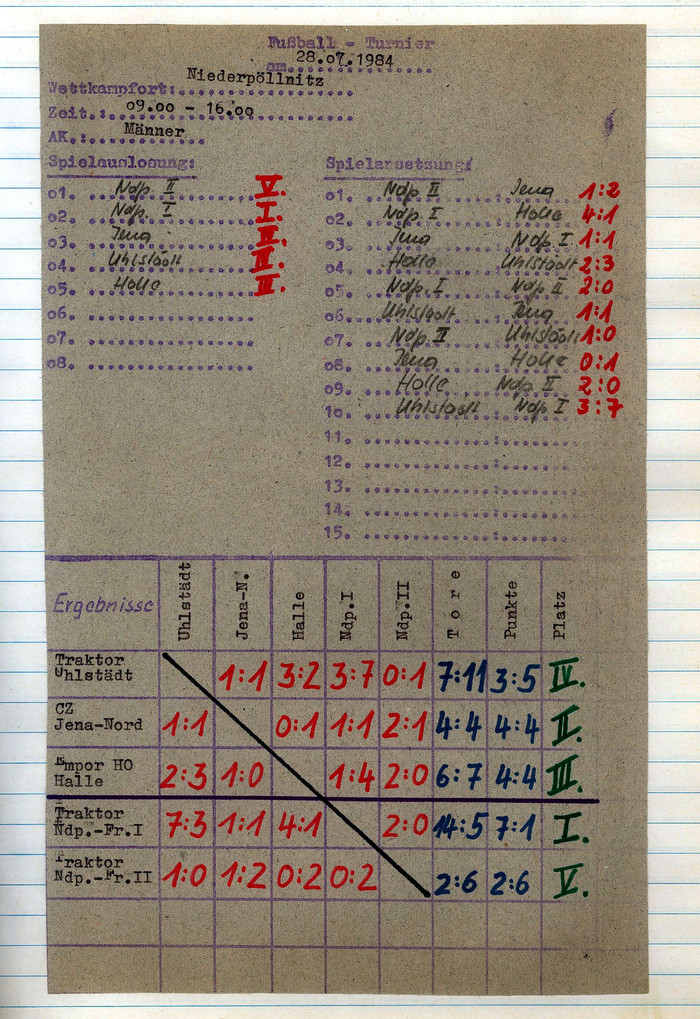 Fußball - Turnier
am 28.07.1984
Wettkampfort: Niederpöllnitz
Zeit.: 09.00 - 16.00
AK.: Männer
Spielauslosung:
01. Ndp. II V.
02. Ndp. I I.
03. Jena II.
04. Uhlstädt IV.
05. Halle III.
06.
07.
08.
Spielansetzung:
01. Ndp II Jena 1:2
02. Ndp. I Halle 4:1
03. Jena Ndp. I 1:1
04. Halle Uhlstädt 2:3
05. Ndp. I Ndp II 2:0
06. Uhlstädt Jena 1:1
07. Ndp. II Uhlstädt 1:0
08. Jena Halle 0:1
09. Halle Ndp II 2:0
10. Uhlstädt Ndp I 3:7
11.
12.
13.
14.
15.
Ergebnisse Uhlstädt Jena-N. Halle Ndp.I Ndp.II Tore Punkte Platz
Traktor Uhlstädt 1:1 3:2 3:7 0:1 7:11 3:5 IV.
CZ Jena-Nord 1:1 0:1 1:1 2:1 4:4 4:4 II.
Empor HO Halle 2:3 1:0 1:4 2:0 6:7 4:4 III.
Traktor Ndp.-Fr.I 7:3 1:1 4:1 2:0 14:5 7:1 I.
Traktor Ndp.-Fr.II 1:0 1:2 0:2 0:2 2:6 2:6 V.